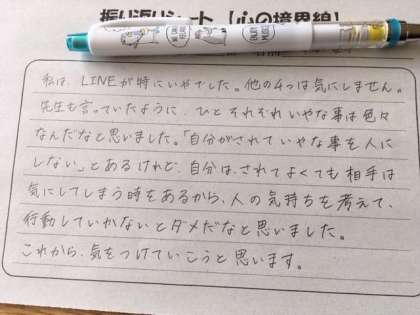 振り返りシート 【心の境界線】
私は、LINEが特にいやでした。他の4つは気にしません。
先生も言っていたように、ひとそれぞれいやな事は色々
なんだなと思いました。「自分がされていやな事を人に
しない」とあるけれど、自分は、されてよくても相手は
気にしてしまう時をあるから、人の気持ちを考えて、
行動していかないとダメだなと思いました。
これから、気をつけていこうと思います。